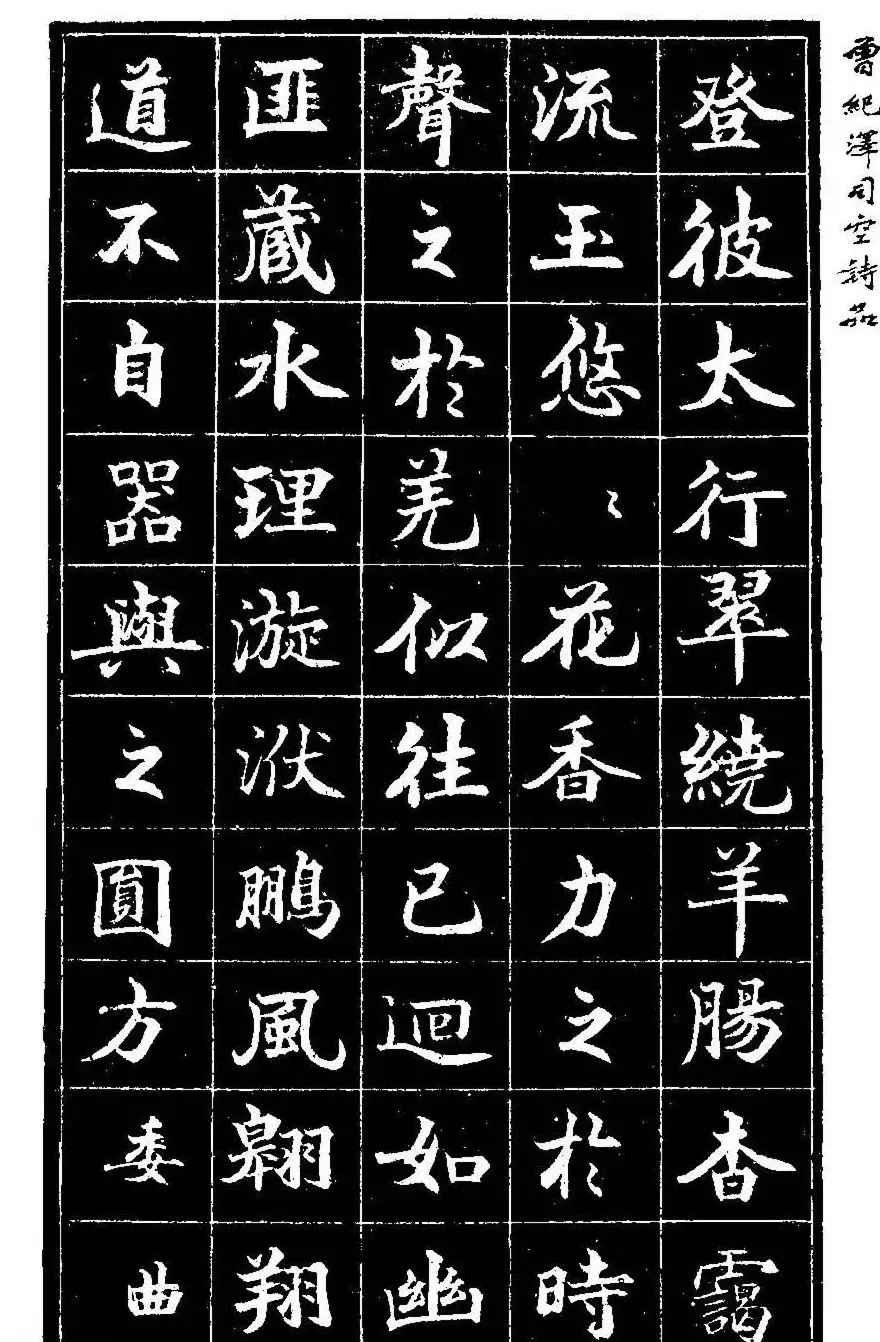 曾紀澤司空詩品
登彼太行翠繞羊腸杳靄
流玉悠〻花香力之於時
聲之於羌似往已迴如幽
匪藏水理漩洑鵬風翱翔
道不自器與之圓方委曲